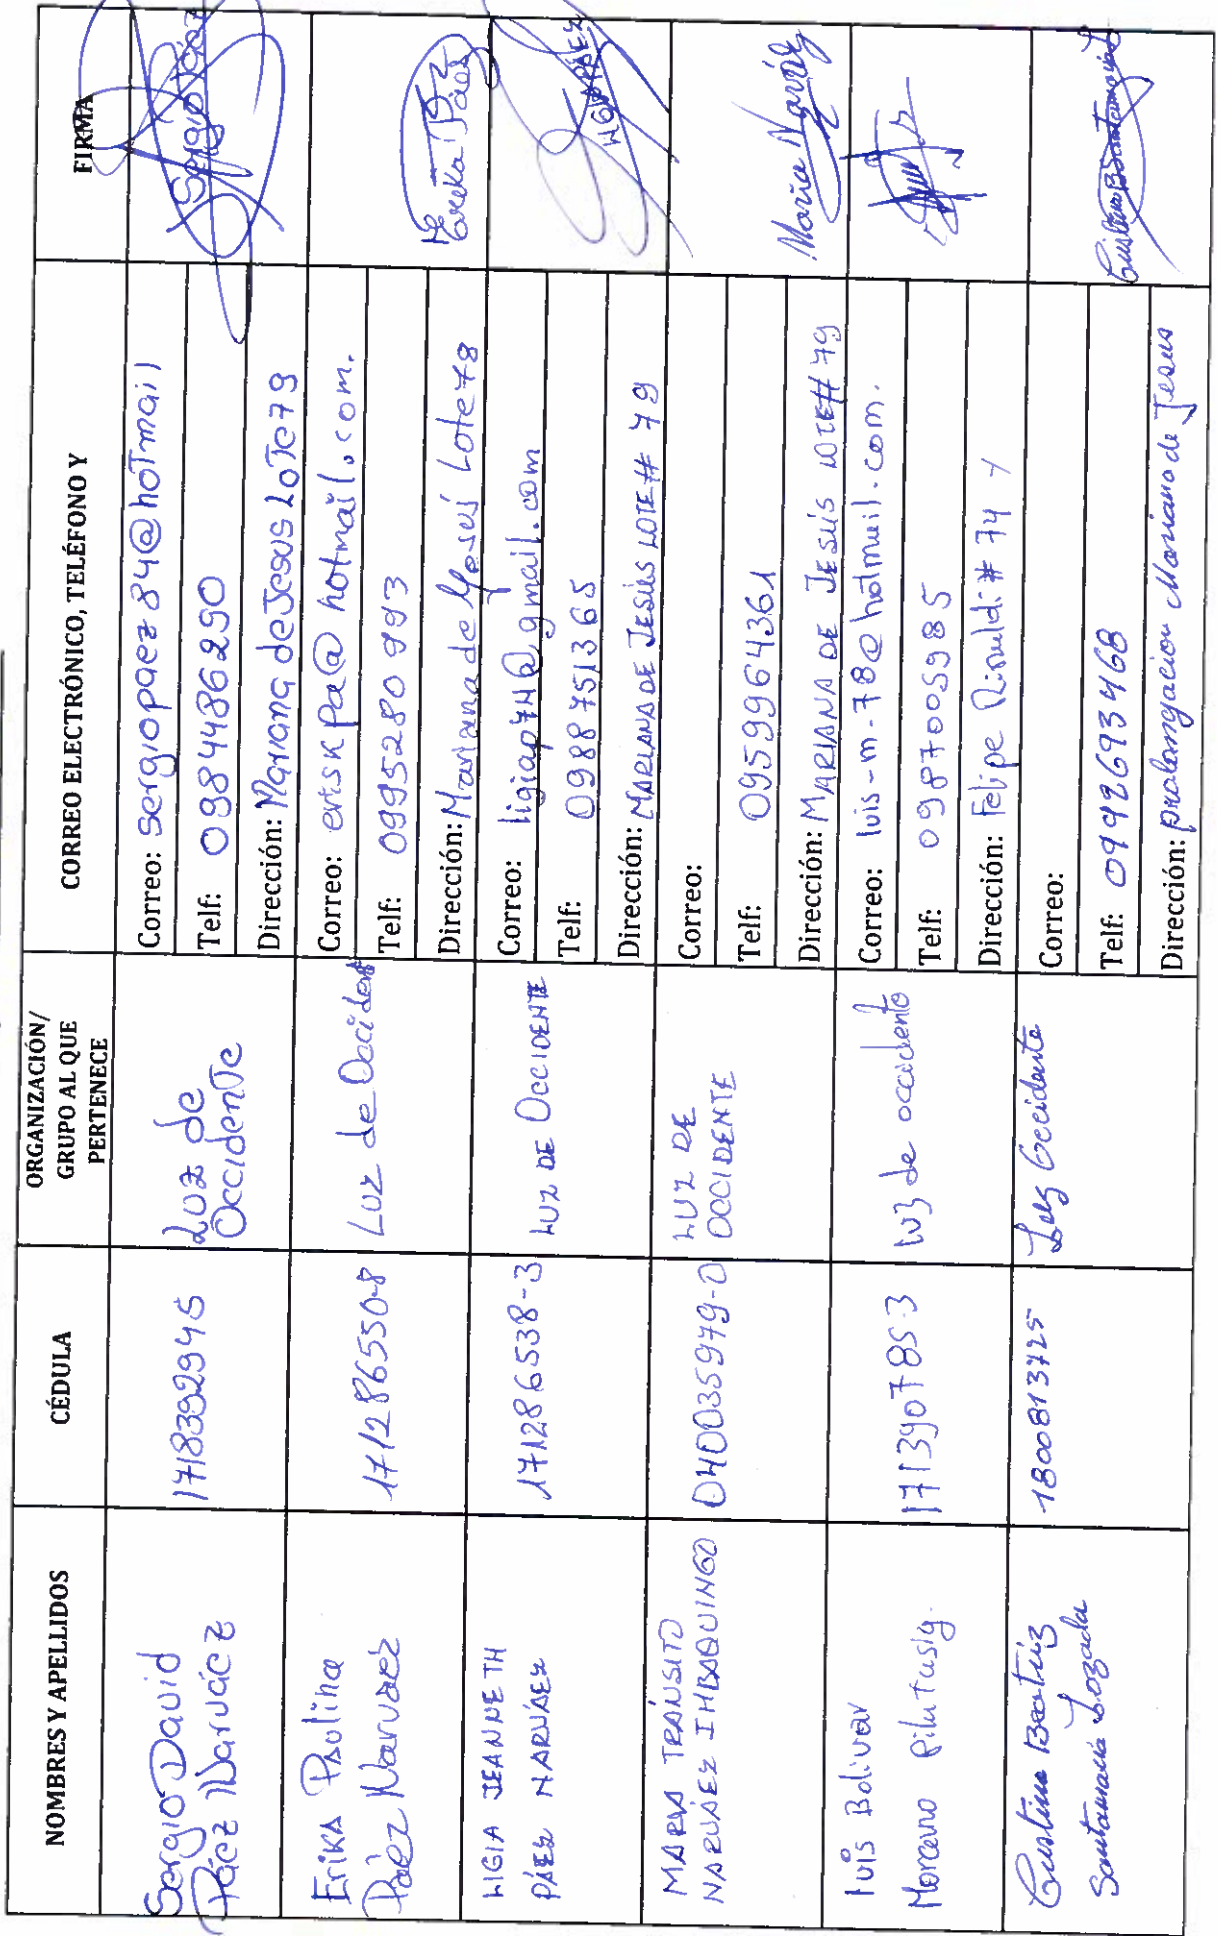 NOMBRES Y APELLIDOS
CÉDULA
ORGANIZACIÓN/
GRUPO AL QUE
PERTENECE
CORREO ELECTRÓNICO, TELÉFONO Y
FIRMA
Sergio David
Páez Narváez
1718392945
Luz de
Occidente
Correo: sergiopaez84@hotmail
Telf: 0984486290
Dirección: Mariana de Jesus Lote79
Sergio Páez
Erika Paulina
Páez Narvaez
171286550-8
Luz de Occident
Correo: eriskpa@hotmail.com.
Telf: 0995280993
Dirección: Mariana de Jesús Lote78
Ereka Páez
LIGIA JEANNETH
PÁEZ NARVÁEZ
171286538-3
LUZ DE OCCIDENTE
Correo: ligiap74@gmail.com
Telf: 0988751365
Dirección: MARIANA DE JESÚS LOTE# 79
MARIA TRÁNSITO
NARVÁEZ IMBAQUINGO
040035979-0
LUZ DE
OCCIDENTE
Correo:
Telf: 0959964361
Dirección: MARIANA DE JESÚS LOTE# 79
Maria Narváez
Luis Bolivar
Moreno Pilatasig.
171390785-3
luz de occidente
Correo: luis-m-78@hotmail.com.
Telf: 0987005985
Dirección: Felipe Rinaldi # 74 y
Cristina Beatriz
Santamaria Lozada
1800813725
Luz Occidente
Correo:
Telf: 0992693468
Dirección: prolongacion Mariana de Jesus